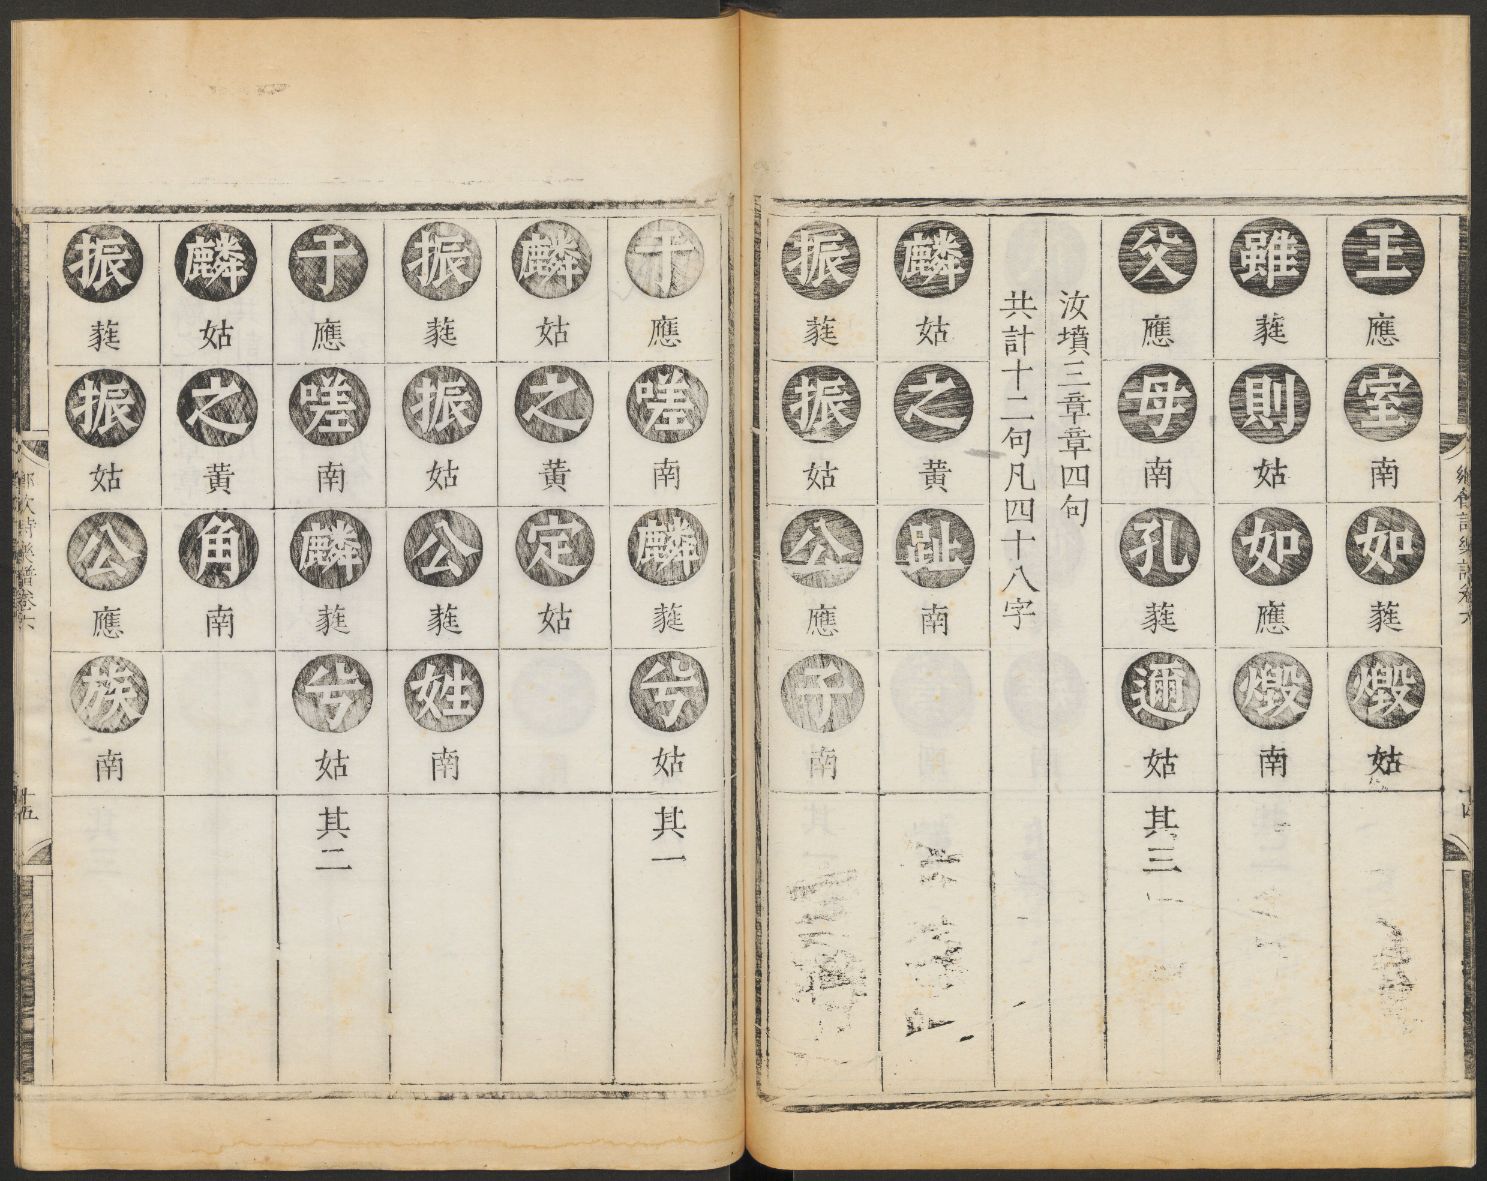 王應室南如蕤燬姑
雖蕤則姑如應燬南
父應母南孔蕤邇姑其三
汝墳三章章四句
共計十二句凡四十八字
麟姑之黄趾南
振蕤振姑公應子南
于應嗟南麟蕤兮姑其一
麟姑之黄定姑
振蕤振姑公蕤姓南
于應嗟南麟蕤兮姑其二
麟姑之黄角南
振蕤振姑公應族南